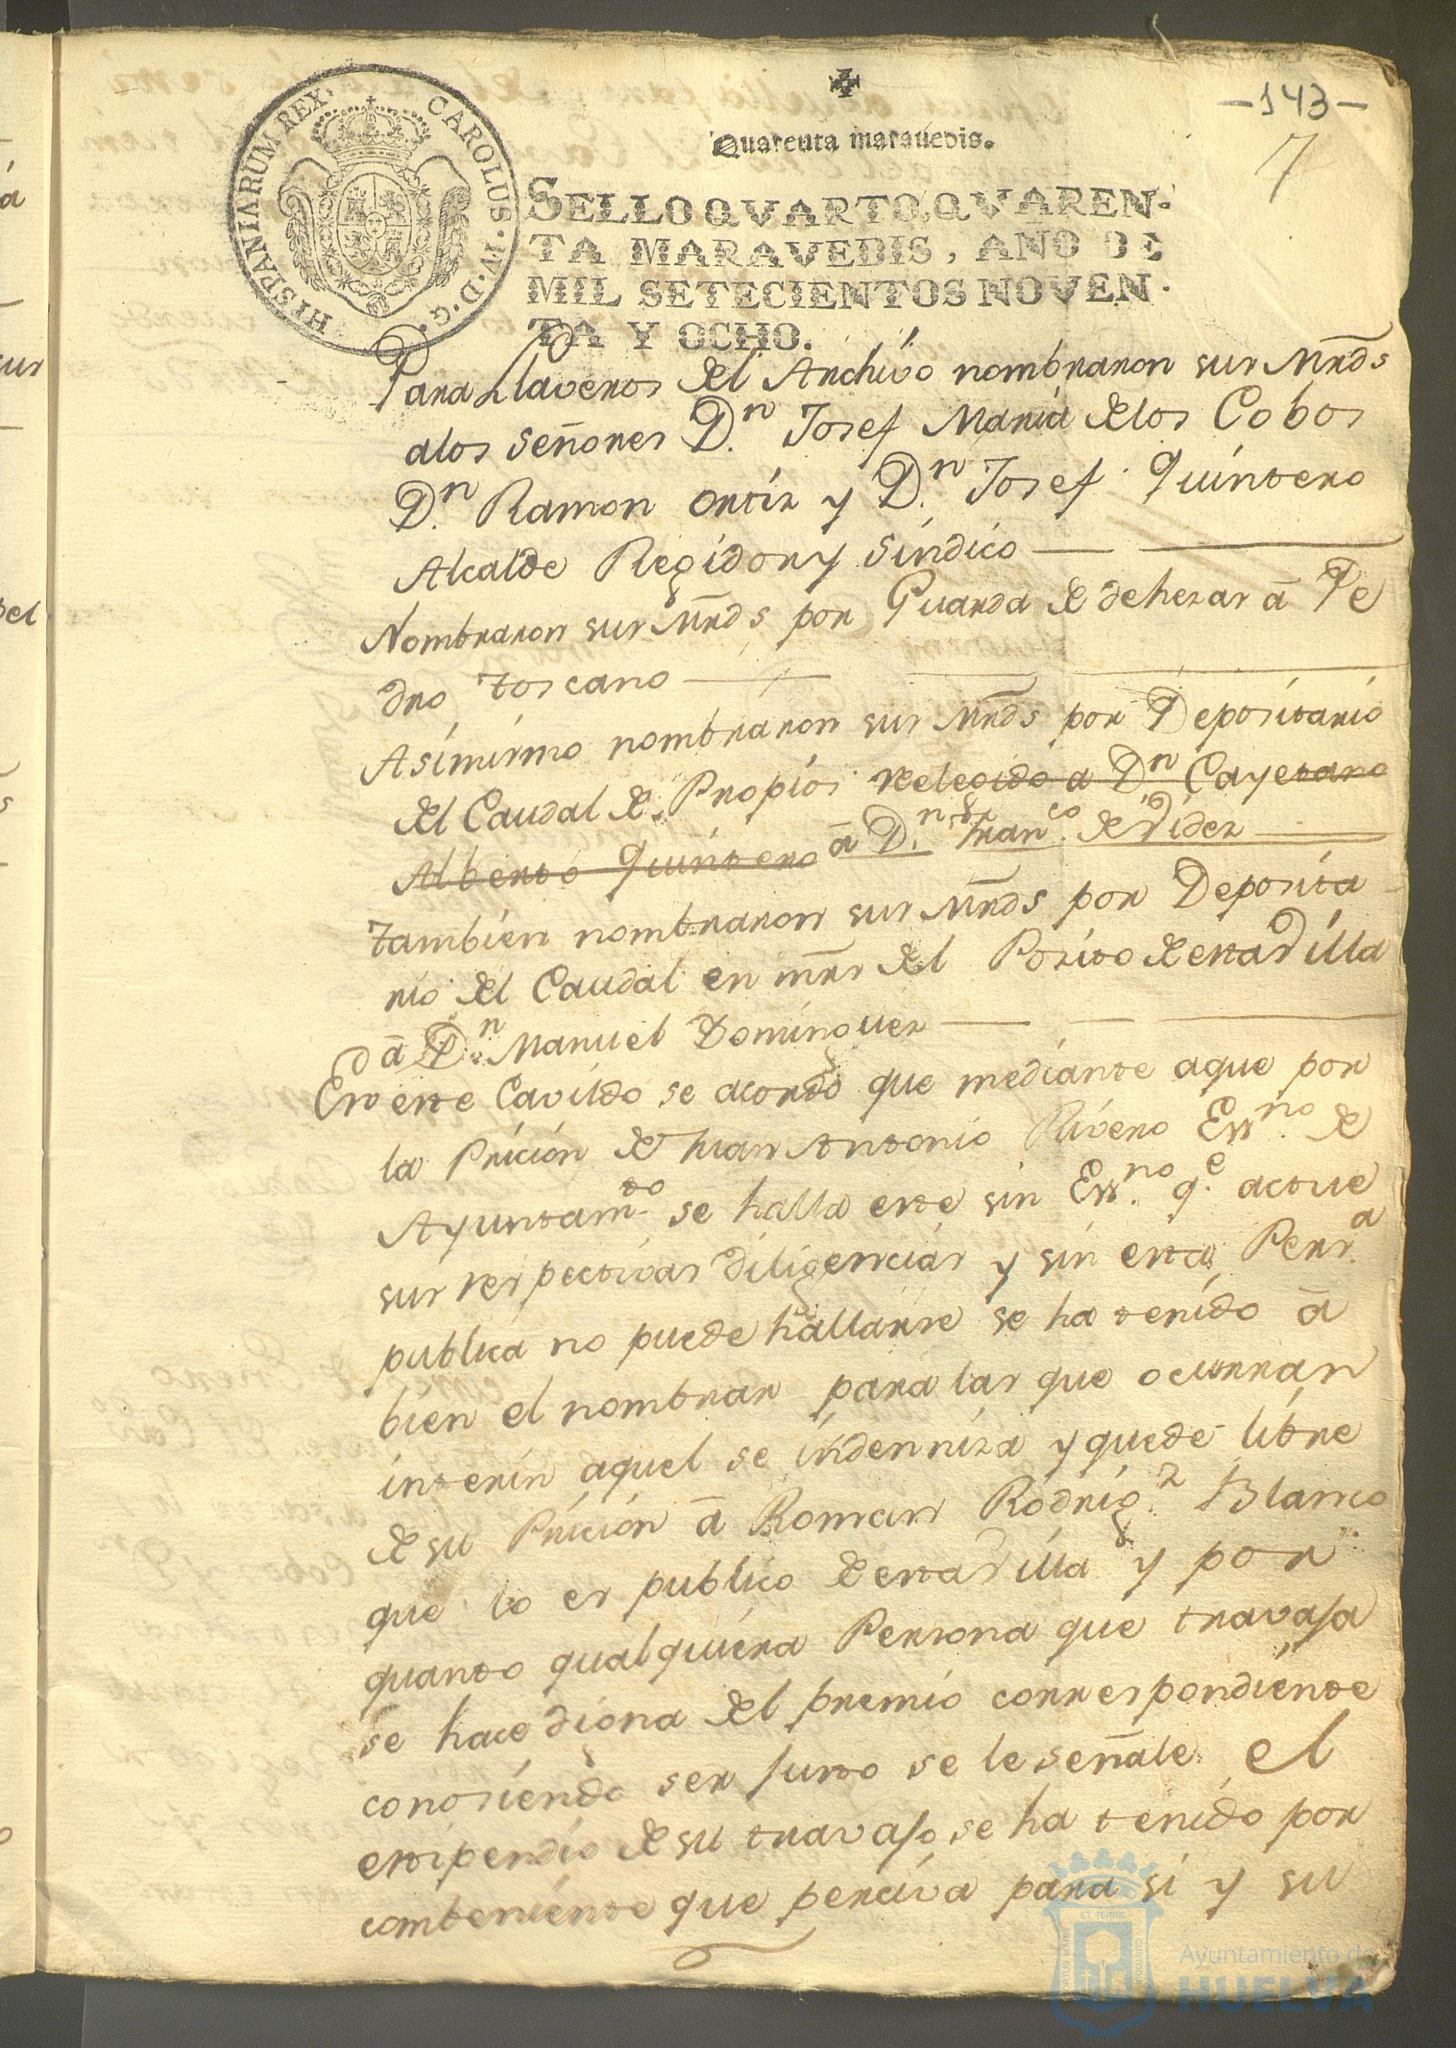 -143-
7
Quarenta maravedis.
HISPANIARUM REX. CAROLUS·IV·D·G·
SELLO QVARTO, QVAREN-
TA MARAVEDIS, AÑO DE
MIL SETECIENTOS NOVEN-
TA Y OCHO.
Para Llaveros del Archivo nombraron sus Mrds
alos Señores Dn. Josef Maria delos Cobos
Dn. Ramon Ortiz y Dn. Josef Quintero
Alcalde Regidor y Sindico
Nombraron sus Mrds por Guarda de dehezas â Pe
dro Toscano
Asimismo nombraron sus Mrds por Depositario
del Caudal de Propios relegido a Dn Cayetano
Alberto Quintero â Dn. Franco. de
tambien nombraron sus Mrds por Deposita
rio del Caudal en mrs del Pozito de esta Villa
â Dn. Manuel Dominguez
En este Cavildo se acordó que mediante aque por
la Pricion de Juan Antonio Rivero Essno. de
Ayuntamto se halla este sin Essno. qe. actue
sus respectivas diligencias y sin esta Persa.
publica no puede hallarse se ha tenido â
bien el nombrar para las que ocurran
interin aquel se indenniza y quede libre
de su Pricion â Roman Rodrigz. Blanco
que lo es publico de esta Villa y por
quanto qualquiera Persona que travaja
se hace digna del premio correspondiente
conosiendo ser justo se le señale el
estipendio de su travajo, se ha tenido por
combeniente que perciva para si y su
Ayuntamiento de
HUELVA